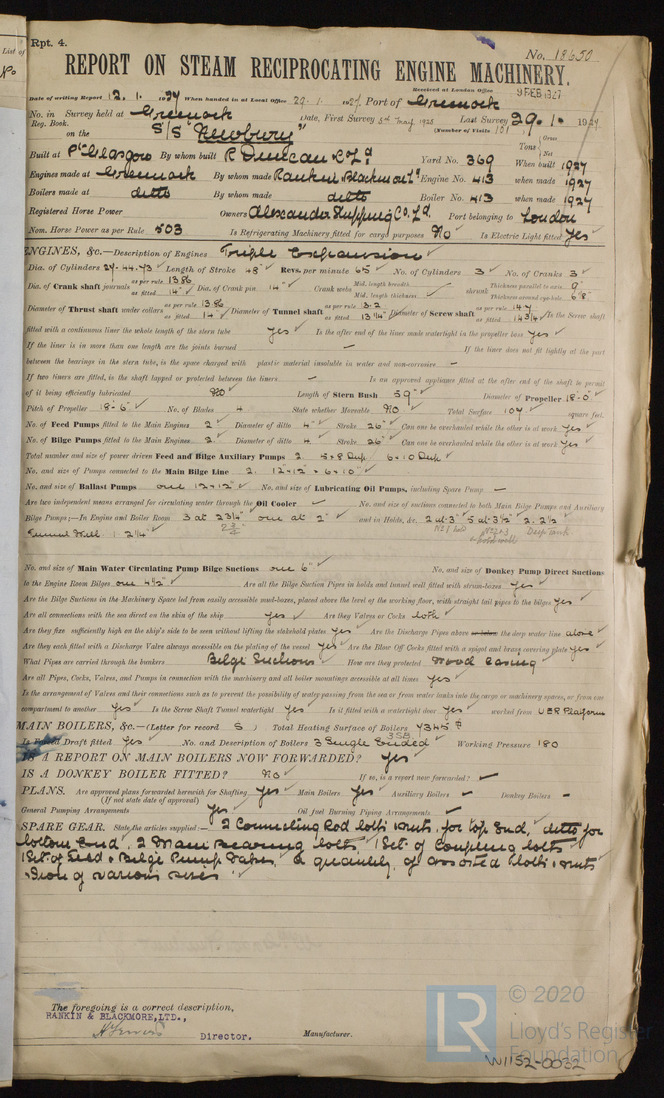 List of
No
Rpt. 4.
No. 18650
REPORT ON STEAM RECIPROCATING ENGINE MACHINERY.
Received at London Office 9 FEB 1927
Date of writing Report 12.1.1927 When handed in at Local Office 29.1.1927 Port of Greenock
No. in Survey held at Greenock Date, First Survey 3rd May 1925 Last Survey 29.1.1927
Reg. Book. (Number of Visits 101)
on the S/S "Newbury" Tons { Gross Net
Built at Pt Glasgow By whom built R Duncan & Co Ld Yard No. 369 When built 1927
Engines made at Greenock By whom made Rankin Blackmore Ld Engine No. 413 when made 1927
Boilers made at ditto By whom made ditto Boiler No. 413 when made 1927
Registered Horse Power Owners Alexander Shipping Co. Ld. Port belonging to London
Nom. Horse Power as per Rule 503 Is Refrigerating Machinery fitted for cargo purposes No Is Electric Light fitted Yes
ENGINES, &c.—Description of Engines Triple Expansion
Dia. of Cylinders 27.44.73 Length of Stroke 48" Revs. per minute 65 No. of Cylinders 3 No. of Cranks 3
Dia. of Crank shaft journals as per rule 13.86 as fitted 14" Dia. of Crank pin 14" Crank webs Mid. length breadth Mid. length thickness shrunk Thickness parallel to axis 9" Thickness around eye-hole 6 7/8"
Diameter of Thrust shaft under collars as per rule 13.86 as fitted 14" Diameter of Tunnel shaft as per rule 13.2 as fitted 13 1/4" Diameter of Screw shaft as per rule 14.7 as fitted 14 3/4" Is the Screw shaft
fitted with a continuous liner the whole length of the stern tube Yes Is the after end of the liner made watertight in the propeller boss Yes
If the liner is in more than one length are the joints burned — If the liner does not fit tightly at the part
between the bearings in the stern tube, is the space charged with plastic material insoluble in water and non-corrosive —
If two liners are fitted, is the shaft lapped or protected between the liners — Is an approved appliance fitted at the after end of the shaft to permit
of it being efficiently lubricated No Length of Stern Bush 59" Diameter of Propeller 18-0"
Pitch of Propeller 18-6" No. of Blades 4 State whether Moveable No Total Surface 107 square feet.
No. of Feed Pumps fitted to the Main Engines 2 Diameter of ditto 4" Stroke 26" Can one be overhauled while the other is at work Yes
No. of Bilge Pumps fitted to the Main Engines 2 Diameter of ditto 4" Stroke 26" Can one be overhauled while the other is at work Yes
Total number and size of power driven Feed and Bilge Auxiliary Pumps 2
No. and size of Pumps connected to the Main Bilge Line 2. 12"×12" × 6×10"
No. and size of Ballast Pumps one 12×12" No. and size of Lubricating Oil Pumps, including Spare Pump —
Are two independent means arranged for circulating water through the Oil Cooler — No. and size of suctions connected to both Main Bilge Pumps and Auxiliary
Bilge Pumps;—In Engine and Boiler Room 3 at 2 3/4" one at 2" and in Holds, &c. 2 at 3" 5 at 3 1/2" 2. 2 1/2"
Tunnel Well 1 2 1/4"
No1 hold Deep Tank
No. and size of Main Water Circulating Pump Bilge Suctions one 6" No. and size of Donkey Pump Direct Suctions
to the Engine Room Bilges one 4 1/2" Are all the Bilge Suction Pipes in holds and tunnel well fitted with strum-boxes Yes
Are the Bilge Suctions in the Machinery Space led from easily accessible mud-boxes, placed above the level of the working floor, with straight tail pipes to the bilges Yes
Are all connections with the sea direct on the skin of the ship Yes Are they Valves or Cocks both
Are they fixed sufficiently high on the ship's side to be seen without lifting the stokehold plates Yes Are the Discharge Pipes above or below the deep water line above
Are they each fitted with a Discharge Valve always accessible on the plating of the vessel Yes Are the Blow Off Cocks fitted with a spigot and brass covering plate Yes
What Pipes are carried through the bunkers Bilge Suctions How are they protected Wood casing
Are all Pipes, Cocks, Valves, and Pumps in connection with the machinery and all boiler mountings accessible at all times Yes
Is the arrangement of Valves and their connections such as to prevent the possibility of water passing from the sea or from water tanks into the cargo or machinery spaces, or from one
compartment to another Yes Is the Screw Shaft Tunnel watertight Yes Is it fitted with a watertight door Yes worked from UER Platform
MAIN BOILERS, &c.—(Letter for record S) Total Heating Surface of Boilers 7345
3SB.
Is Forced Draft fitted Yes No. and Description of Boilers 3 Single Ended Working Pressure 180
IS A REPORT ON MAIN BOILERS NOW FORWARDED? Yes
IS A DONKEY BOILER FITTED? No If so, is a report now forwarded? —
PLANS. Are approved plans forwarded herewith for Shafting Yes Main Boilers Yes Auxiliary Boilers — Donkey Boilers —
(If not state date of approval)
General Pumping Arrangements Yes Oil fuel Burning Piping Arrangements —
SPARE GEAR. State the articles supplied:— 2 Connecting Rod bolts & nuts, for top End, ditto for
bottom End, 2 Main Bearing bolts, 1 Set of Coupling bolts
1 Set of Feed & Bilge Pump Valves, a quantity of assorted bolts & nuts
& Iron of various sizes
The foregoing is a correct description,
RANKIN & BLACKMORE, LTD.,
Director. Manufacturer.
© 2020
LR Lloyd's Register
Foundation
W1152-0032